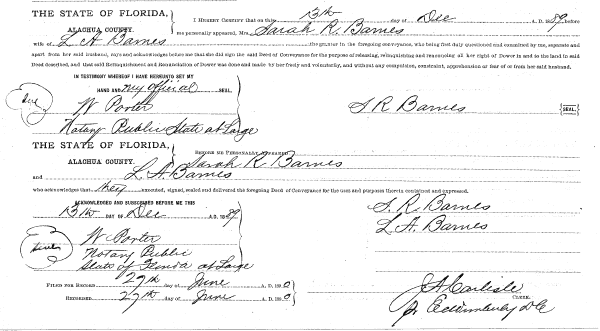 THE STATE OF FLORIDA,
ALACHUA COUNTY.
I HEREBY CERTIFY that on this 13th day of Dec A. D. 1889, before
me personally appeared, Mrs. Sarah R. Barnes
wife of L A Barnes the grantor in the foregoing conveyance, who being first duly questioned and examined by me, separate and
apart from her said husband, says and acknowledges before me that she did sign the said Deed of Conveyance for the purpose of releasing, relinquishing and renouncing all her right of Dower in and to the land in said
Deed described, and that said Relinquishment and Renunciation of Dower was done and made by her freely and voluntarily, and without any compulsion, constraint, apprehension or fear of or from her said husband.
IN TESTIMONY WHEREOF I HAVE HEREUNTO SET MY
HAND AND my official SEAL.
W Porter
Notary Public State at Large
S R Barnes SEAL
THE STATE OF FLORIDA,
ALACHUA COUNTY.
BEFORE ME PERSONALLY APPEARED
Sarah R Barnes
and L. A. Barnes
who acknowledges that they executed, signed, sealed and delivered the foregoing Deed of Conveyance for the uses and purposes therein contained and expressed.
ACKNOWLEDGED AND SUBSCRIBED BEFORE ME THIS
13th DAY OF Dec A. D. 1889
S. R. Barnes
L A. Barnes
W Porter
Notary Public
State of Florida at Large
FILED FOR RECORD 27th day of June A. D. 1890
RECORDED 27th day of June A. D. 1890
J A Carlisle
CLERK.